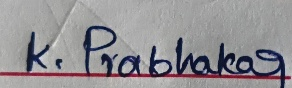 K. Prabhakag